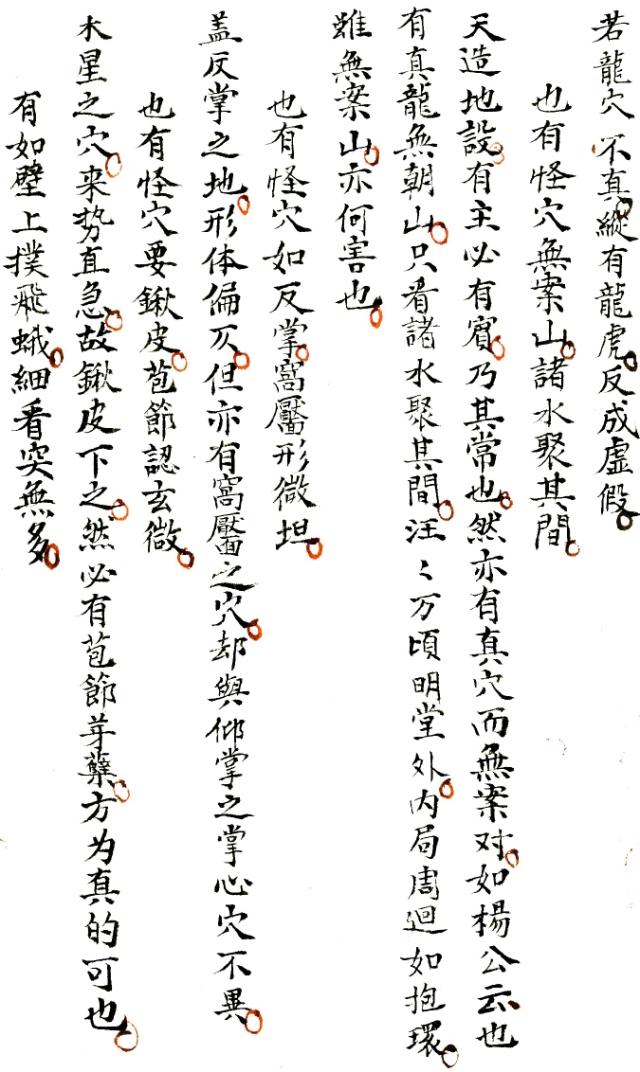 若龍穴不真縱有龍虎反成虛假
也有怪穴無案山諸水聚其間
天造地設有主必有賓乃其常也然亦有真穴而無案对如楊公云也
有真龍無朝山只看諸水聚其間汪〻万頃明堂外内局周迴如抱環
雖無案山亦何害也
也有怪穴如反掌窩靨形微坦
盖反掌之地形体偏仄但亦有窩靨之穴却與仰掌之掌心穴不異
也有怪穴要鍬皮苞節認玄微
木星之穴来势直急故鍬皮下之然必有苞節芽蘖方为真的可也
有如壁上撲飛蛾細看突無多